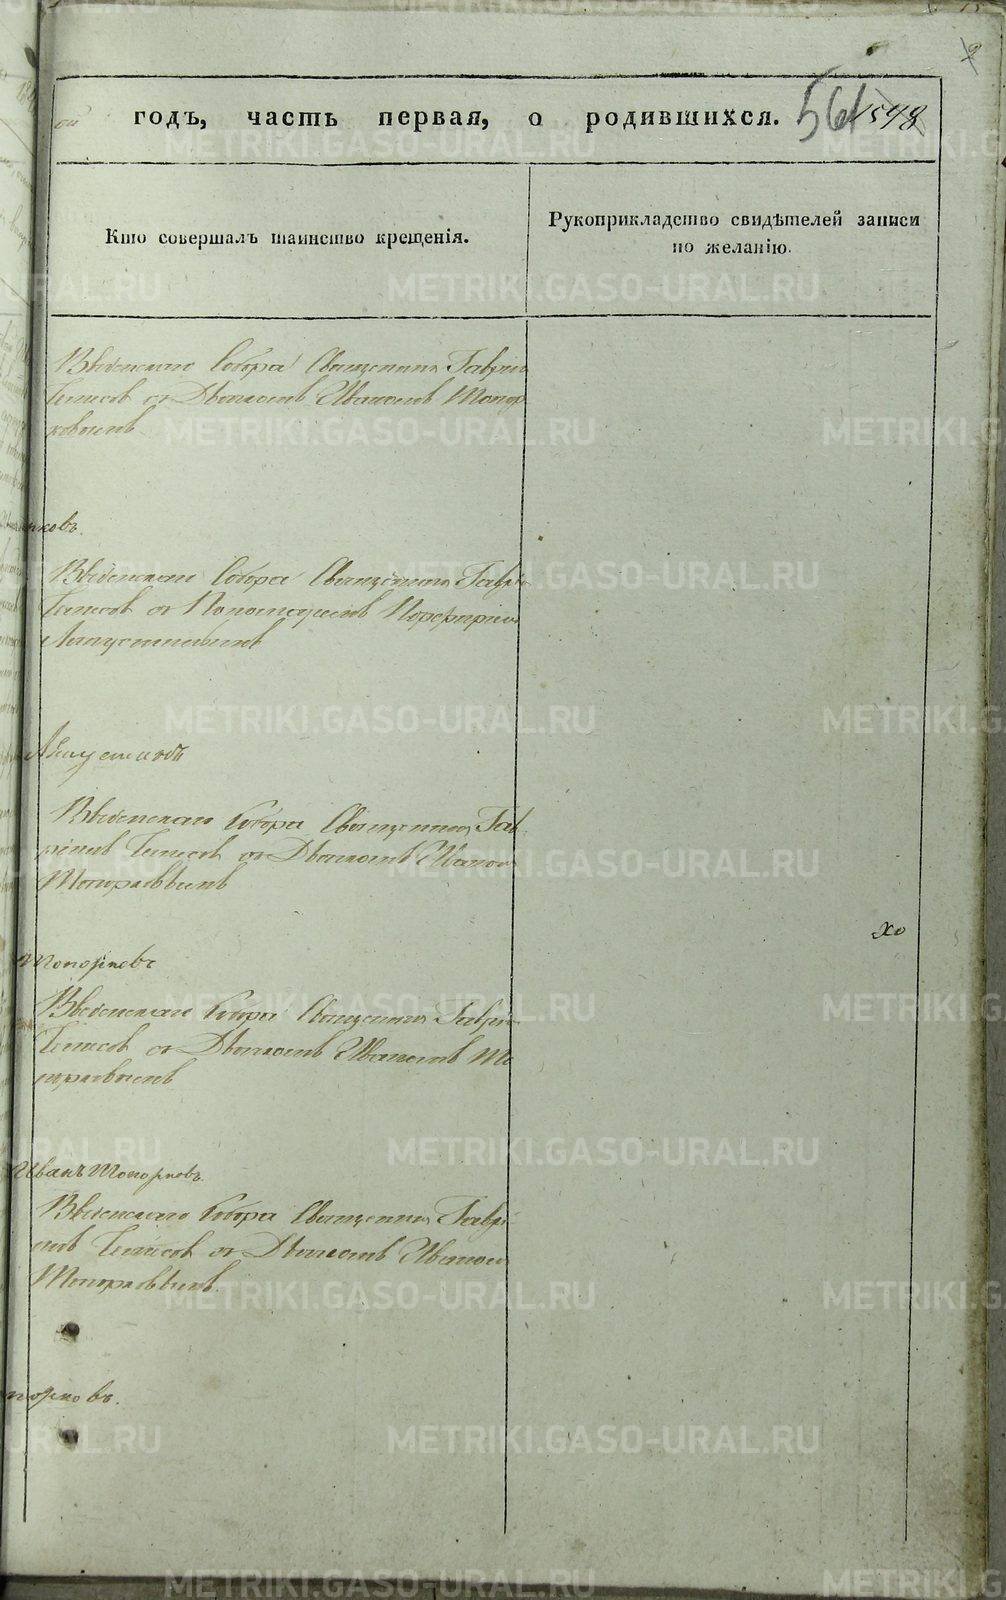 ой годъ, часть первая, о родившихся. 561 1598
Кто совершалъ таинство крещенія.
Рукоприкладство свидѣтелей записи
по желанію.
Введенскаго Собора Священникъ Гавріи
съ Дьякономъ Иваномъ Топор
ковымъ
рковъ.
Введенскаго Собора Священникъ Гаврі
съ Пономаремъ Порфиріем
Введенскаго Собора Священникъ Гав
ріилъ съ Дьякономъ Иваном
Топорковымъ
Топорковъ
Введенскаго Собора Священникъ Гаврі
съ Дьякономъ Иваномъ То
порковымъ
Иванъ Топорковъ.
Введенскаго Собора Священникъ Гаврі
илъ съ Дьякономъ Иваном
Топорковымъ.
порковъ.
METRIKI.GASO-URAL.RU